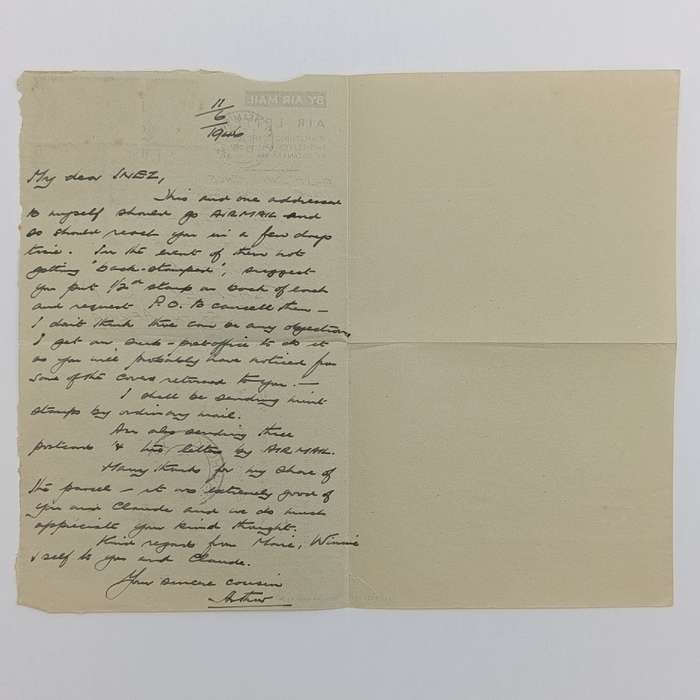 11
6
1946
My dear INEZ,
This and one addressed
to myself should go AIRMAIL and
so should reach you in a few days
time. In the event of them not
getting "back-stamped", suggest
you put 1/2d stamp on back of each
and request P.O. to cancell them —
I don't think there can be any objection,
I get our sub-postoffice to do it
as you will probably have noticed from
some of the covers returned to you. —
I shall be sending mint
stamps by ordinary mail.
Am also sending three
postcards & two letters by AIR MAIL.
Many thanks for my share of
the parcel — it was extremely good of
you and Claude and we do much
appreciate your kind thought.
Kind regards from Marie, Winnie
& self to you and Claude.
Your sincere cousin
Arthur
BY AIR MAIL